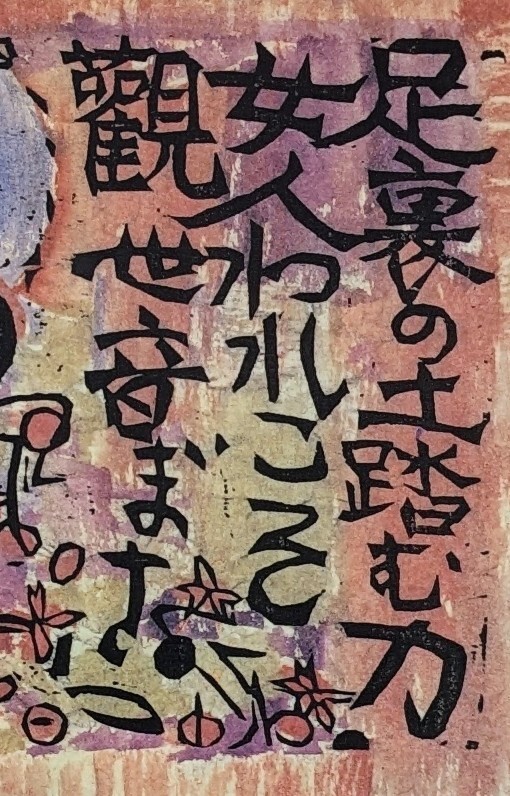 足裏の土踏む力
女人われころ
觀世音まなり